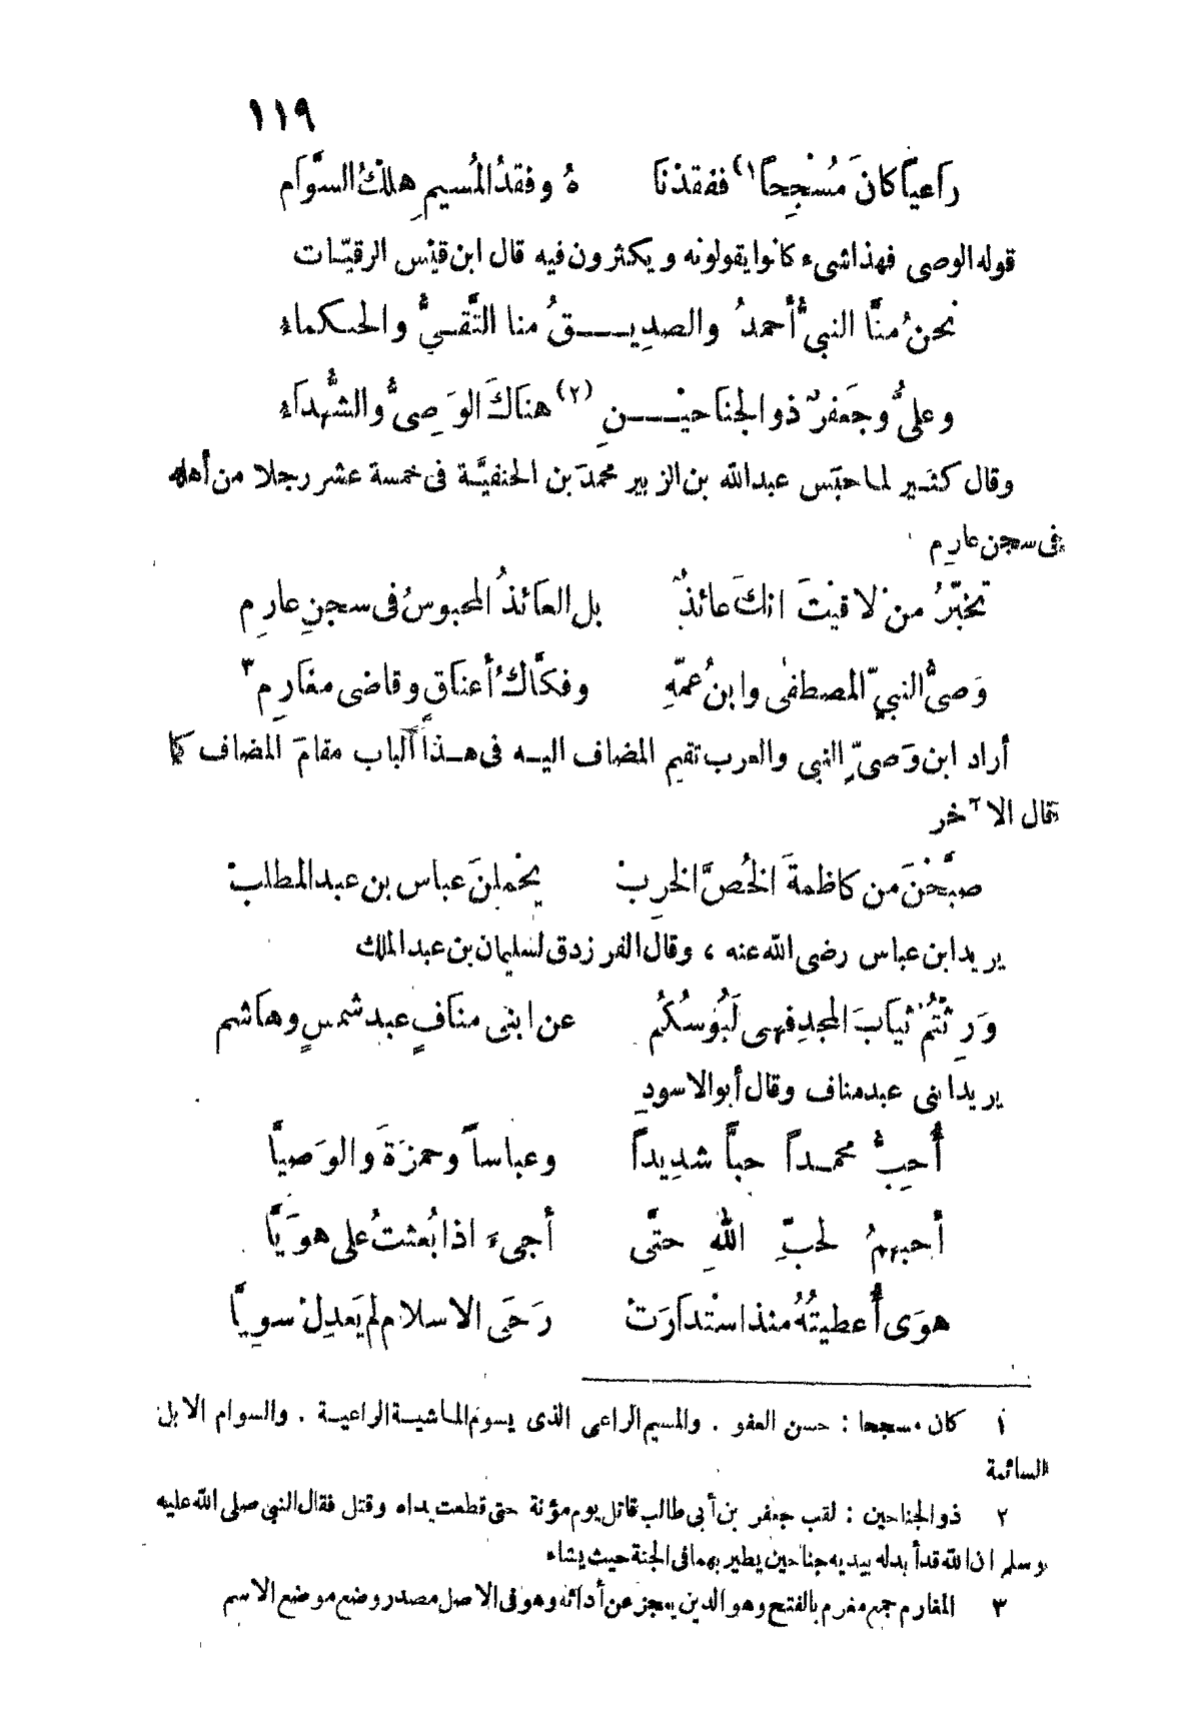 ١١٩
رَاعياً كانَ مُسْجِحاً (١ ففقدْنَا هُ وفقدُ المُسيمِ هلْكُ السَّوَام
قوله الوصى فهذا شىء كانوا يقولونه ويكثرون فيه قال ابن قيْس الرقيّات
نحنُ منَّا النبىُّ أحمدُ والصدِيـــقُ منا التَّقىُّ والحكماء
وعلىٌّ وجَعفرٌ ذو الجنَاحيْـــنِ (٢) هنَاكَ الوَصِىُّ والشُّهدَاء
وقال كثير لما حبَس عبدالله بن الزبير محمدَ بن الحنفيَّة فى خمسة عشر رجلا من أهله
فى سجن عارِم
تخبّرُ منْ لاقيْتَ انكَ عائذٌ بل العَائذُ المحبوسُ فى سجنِ عارِم
وَصىُّ النبىِّ المصطفى وابنُ عمّهِ وفكَّاكُ أعنَاقٍ وقاضى مغَارِم ٣
أراد ابن وَصىِّ النبى والعرب تقيم المضاف اليه فى هذا الباب مقامَ المضاف كما
قال الآخر
صبَّحْنَ من كاظمةَ الخُصَّ الخرِبْ يحْملنَ عباس بن عبدالمطلبْ
يريد ابن عباس رضى الله عنه ، وقال الفرزدق لسليمان بن عبدالملك
وَرِثْتُمْ ثيَابَ المجدِ فهى لَبُوسُكُم عن ابنى منَافٍ عبد شمسٍ وهاشم
يريد ابنى عبدمناف وقال أبو الاسودِ
أُحِبُّ محمداً حبًّا شدِيداً وعباساً وحمزَةَ والوَصيَّا
أحبهمُ لحبِّ اللهِ حتَّى أجىءَ اذا بُعثتُ على هوَيَّا
هوَى أُعطيتُهُ منذ اسْتدَارَتْ رَحَى الاسلام لم يَعدِلْ سوِيَّا
١ كان مسجحا : حسن العفو . والمسيم الراعى الذى يسوم الماشية الراعية . والسوام الابل
السائمة
٢ ذو الجناحين : لقب جعفر بن أبى طالب قاتل يوم مؤتة حتى قطعت يداه وقتل فقال النبى صلى الله عليه
وسلم ان الله قد أبدله بيديه جناحين يطير بهما فى الجنة حيث يشاء
٣ المغارم جمع مغرم بالفتح وهو الدين يعجز عن أدائه وهو فى الاصل مصدر وضع موضع الاسم